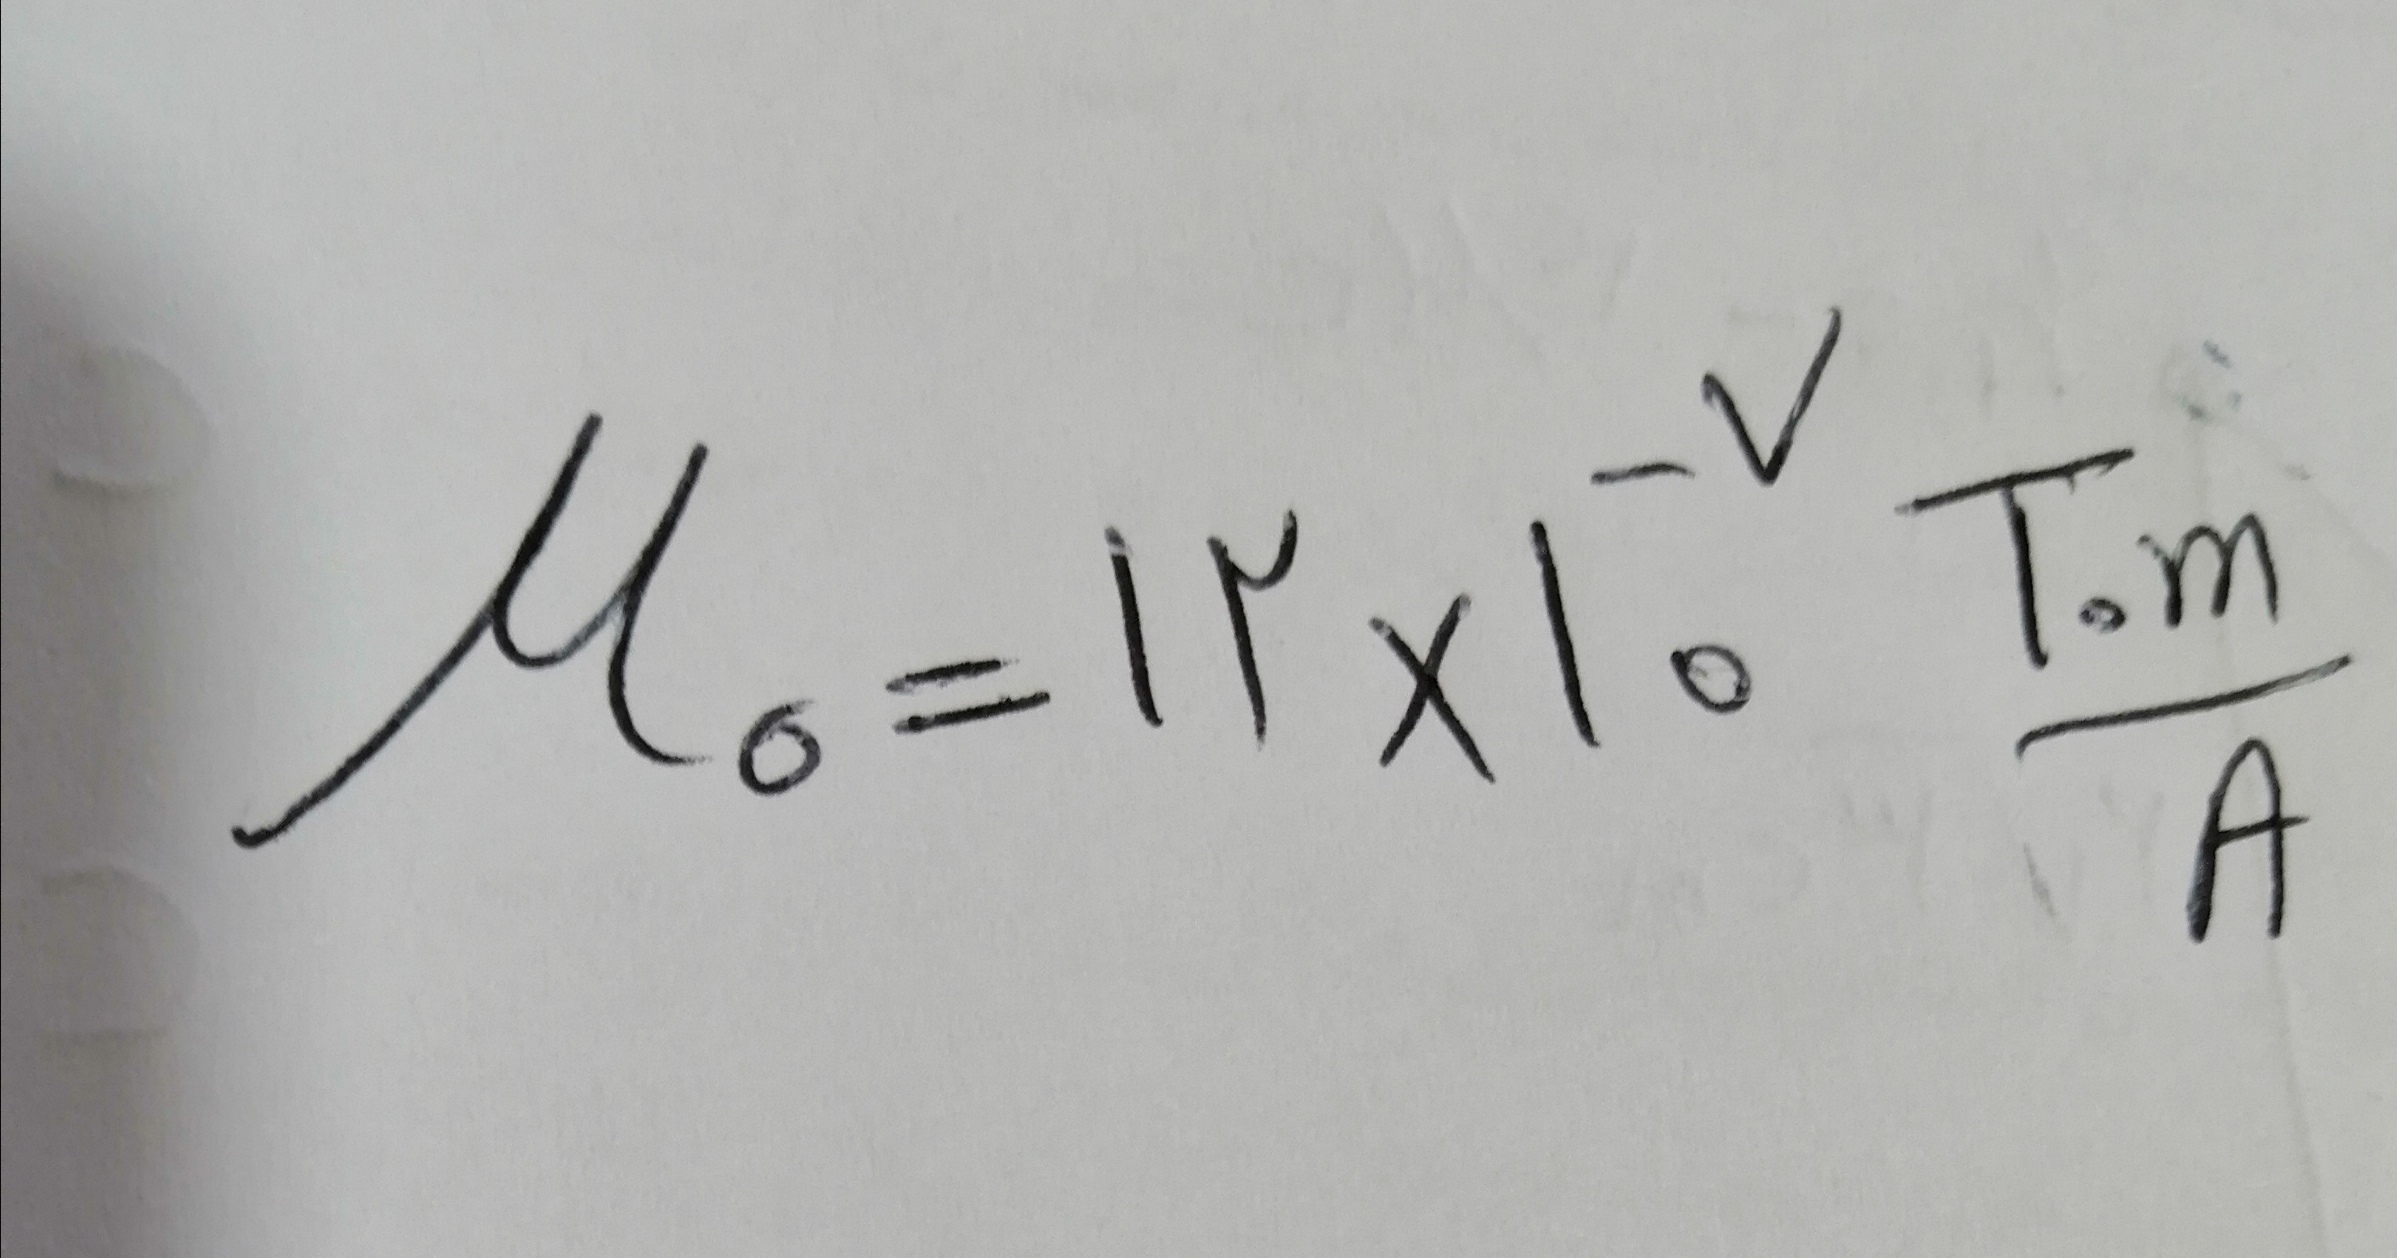 μ₀ = ۱۲ × ۱۰⁻⁷ T.m/A